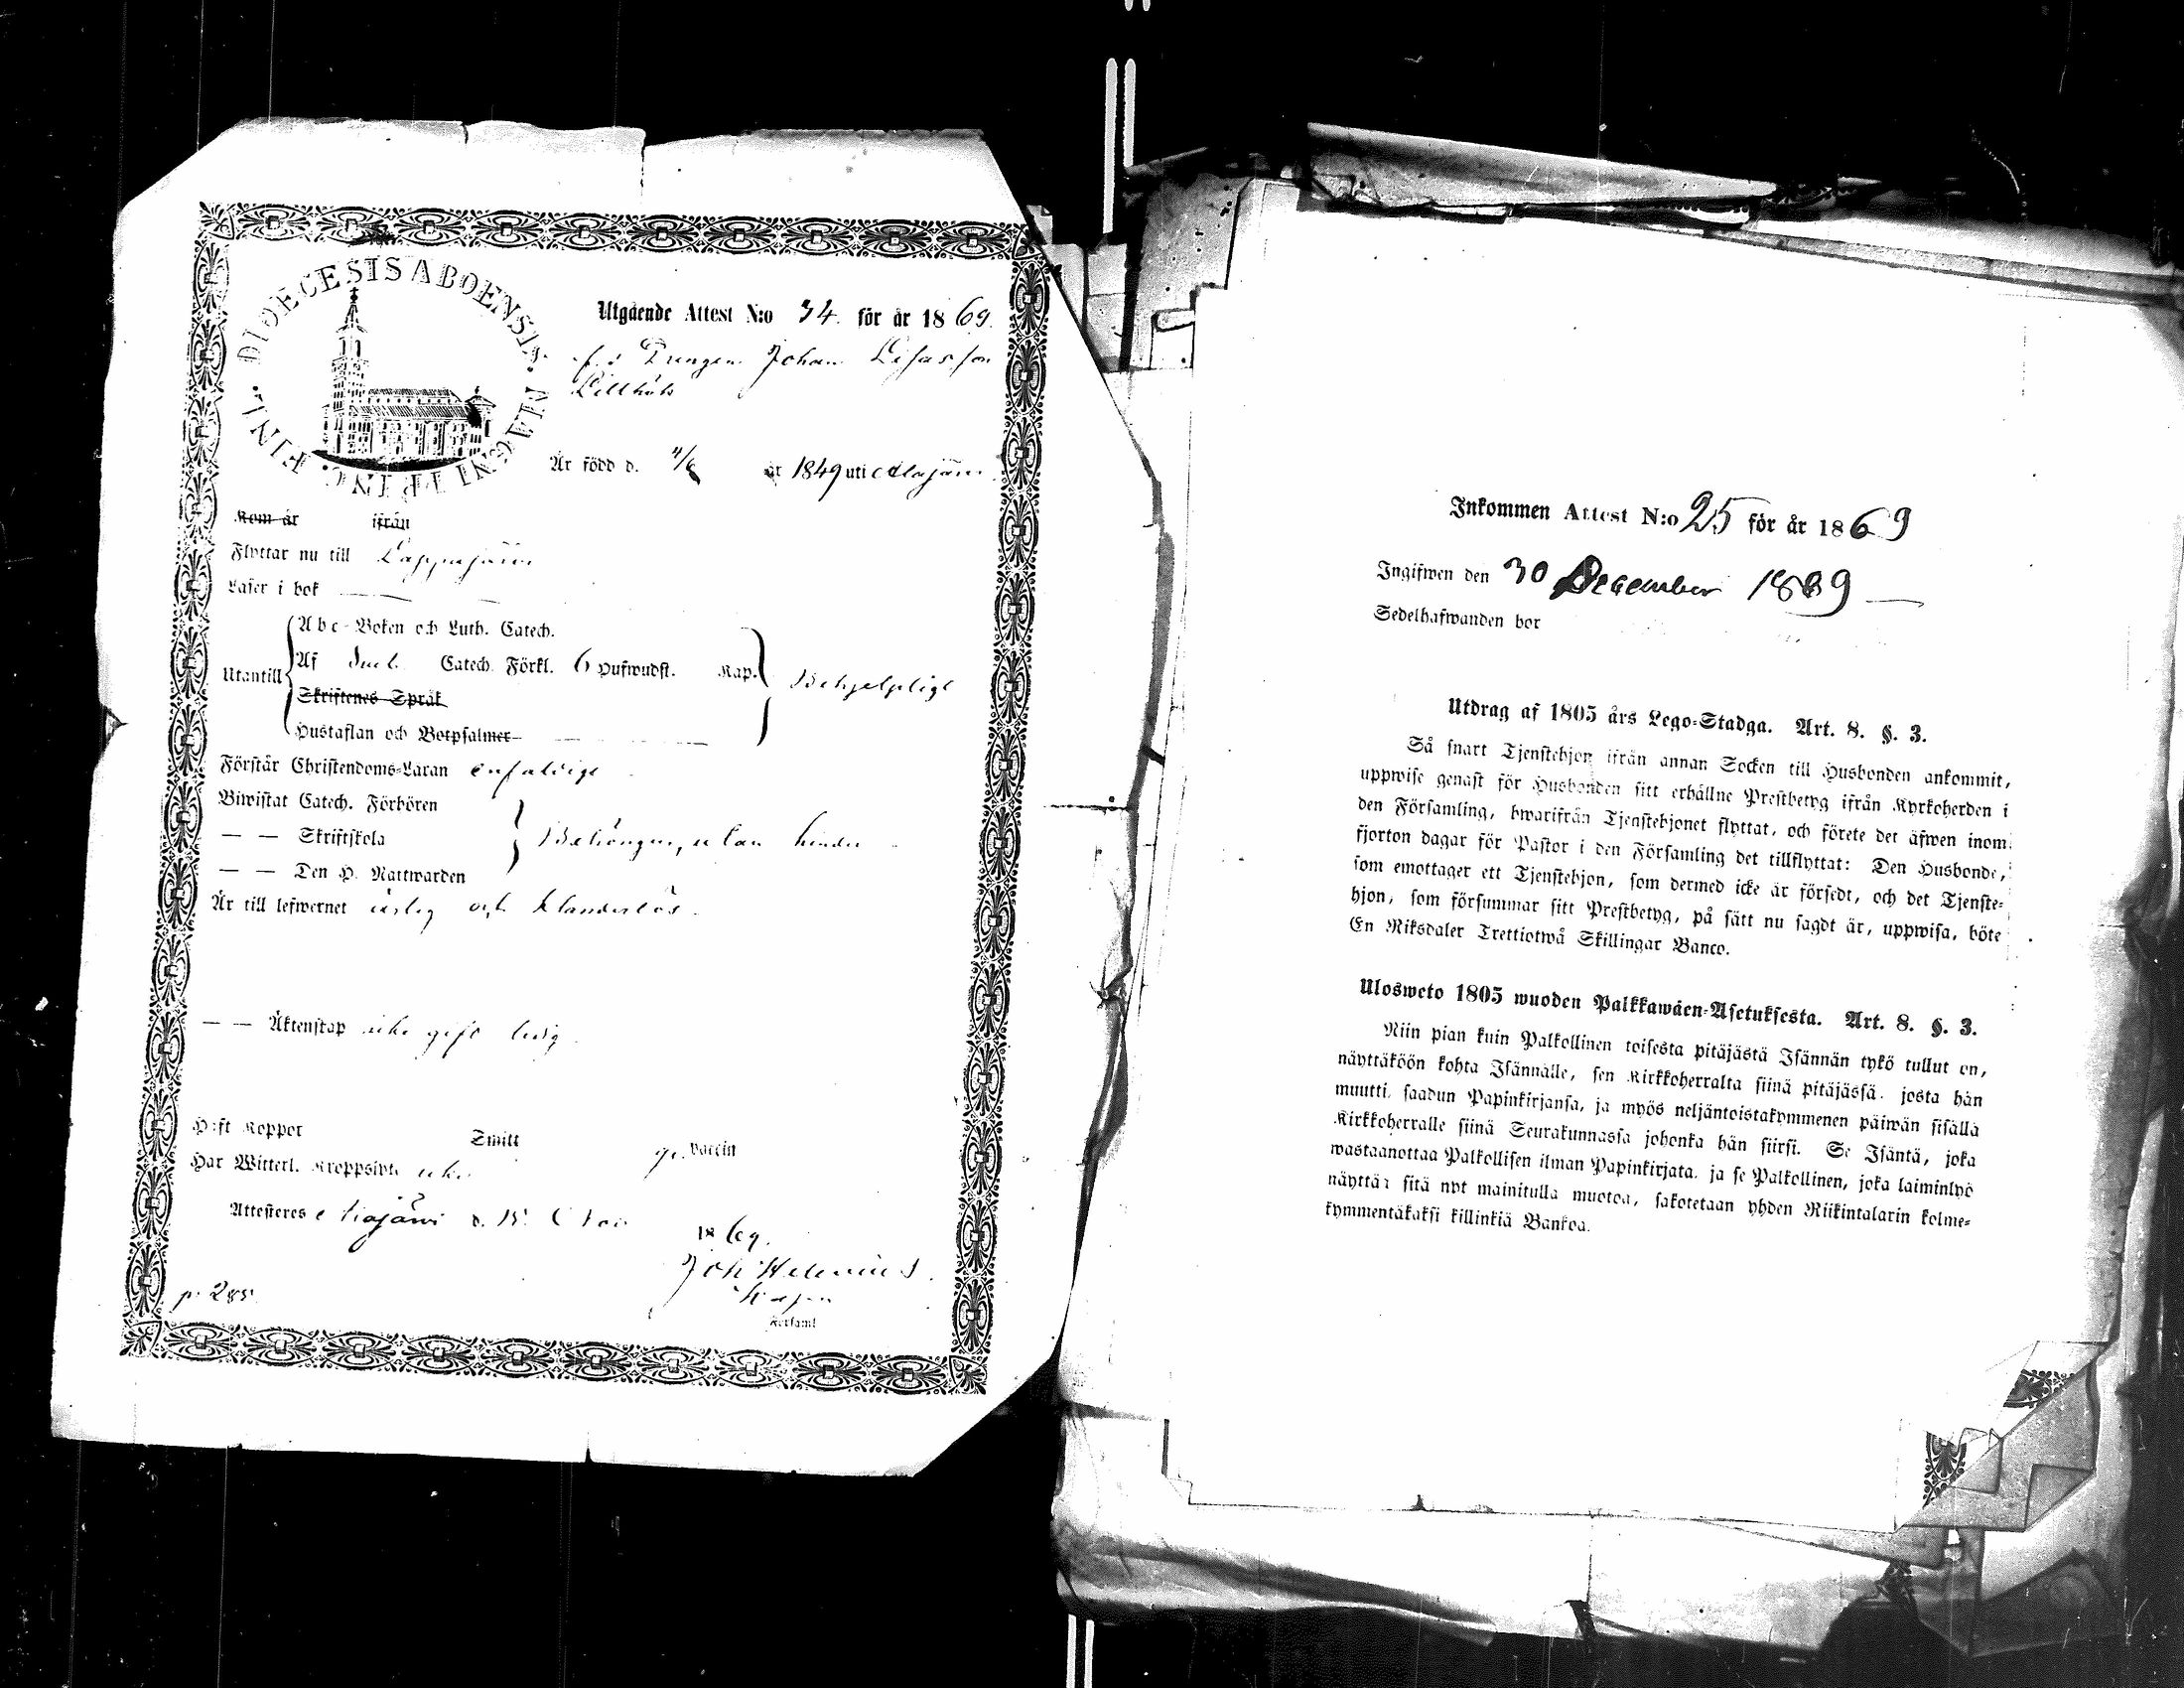 DIOECESIS ABOENSIS MAGNI PRINC. FINL.
Utgående Attest N:o 34. för år 1869.
f. d Drengen Johan
Är född d. år 1849 uti
Kom år ifrån
Flyttar nu till Lappajärvi
Läser i bok
Abc-Boken och Luth. Catech.
Utantill Af Catech. Förkl. 6 Hufwudst. Kap. Behjelpligt
Skriftenes Språk
Hustaflan och Botpsalmer
Förstår Christendoms-Läran enfaldigt
Biwistat Catech. Förhören
— — Skriftskola
— — Den H. Nattwarden
Är till lefwernet ärlig och klanderlös.
— — Äktenskap icke gift ledig.
Haft Koppor Smitt Vaccin
Har Witterl. Kroppslyte icke.
Attesteres d. 18 69.
Joh Helenius
Församl
p. 285
Inkommen Attest N:o 25 för år 1869
Ingifwen den 30 December 1869
Sedelhafwanden bor
Utdrag af 1805 års Lego-Stadga. Art. 8. §. 3.
Så snart Tjenstehjon ifrån annan Socken till Husbonden ankommit,
uppwise genast för Husbonden sitt erhållne Prestbetyg ifrån Kyrkoherden i
den Församling, hwarifrån Tjenstehjonet flyttat, och förete det äfwen inom
fjorton dagar för Pastor i den Församling det tillflyttat: Den Husbonde,
som emottager ett Tjenstehjon, som dermed icke är försedt, och det Tjenste-
hjon, som försummar sitt Prestbetyg, på sätt nu sagdt är, uppwisa, böte
En Riksdaler Trettiotwå Skillingar Banco.
Ulosweto 1805 wuoden Palkkawäen-Asetuksesta. Art. 8. §. 3.
Niin pian kuin Palkollinen toisesta pitäjästä Isännän tykö tullut on,
näyttäköön kohta Isännälle, sen Kirkkoherralta siinä pitäjässä, josta hän
muutti, saadun Papinkirjansa, ja myös neljäntoistakymmenen päiwän sisällä
Kirkkoherralle siinä Seurakunnassa johonka hän siirsi. Se Isäntä, joka
wastaanottaa Palkollisen ilman Papinkirjata, ja se Palkollinen, joka laiminlyö
näyttää sitä nyt mainitulla muotoa, sakotetaan yhden Riikintalarin kolme-
kymmentäkaksi killinkiä Bankoa.